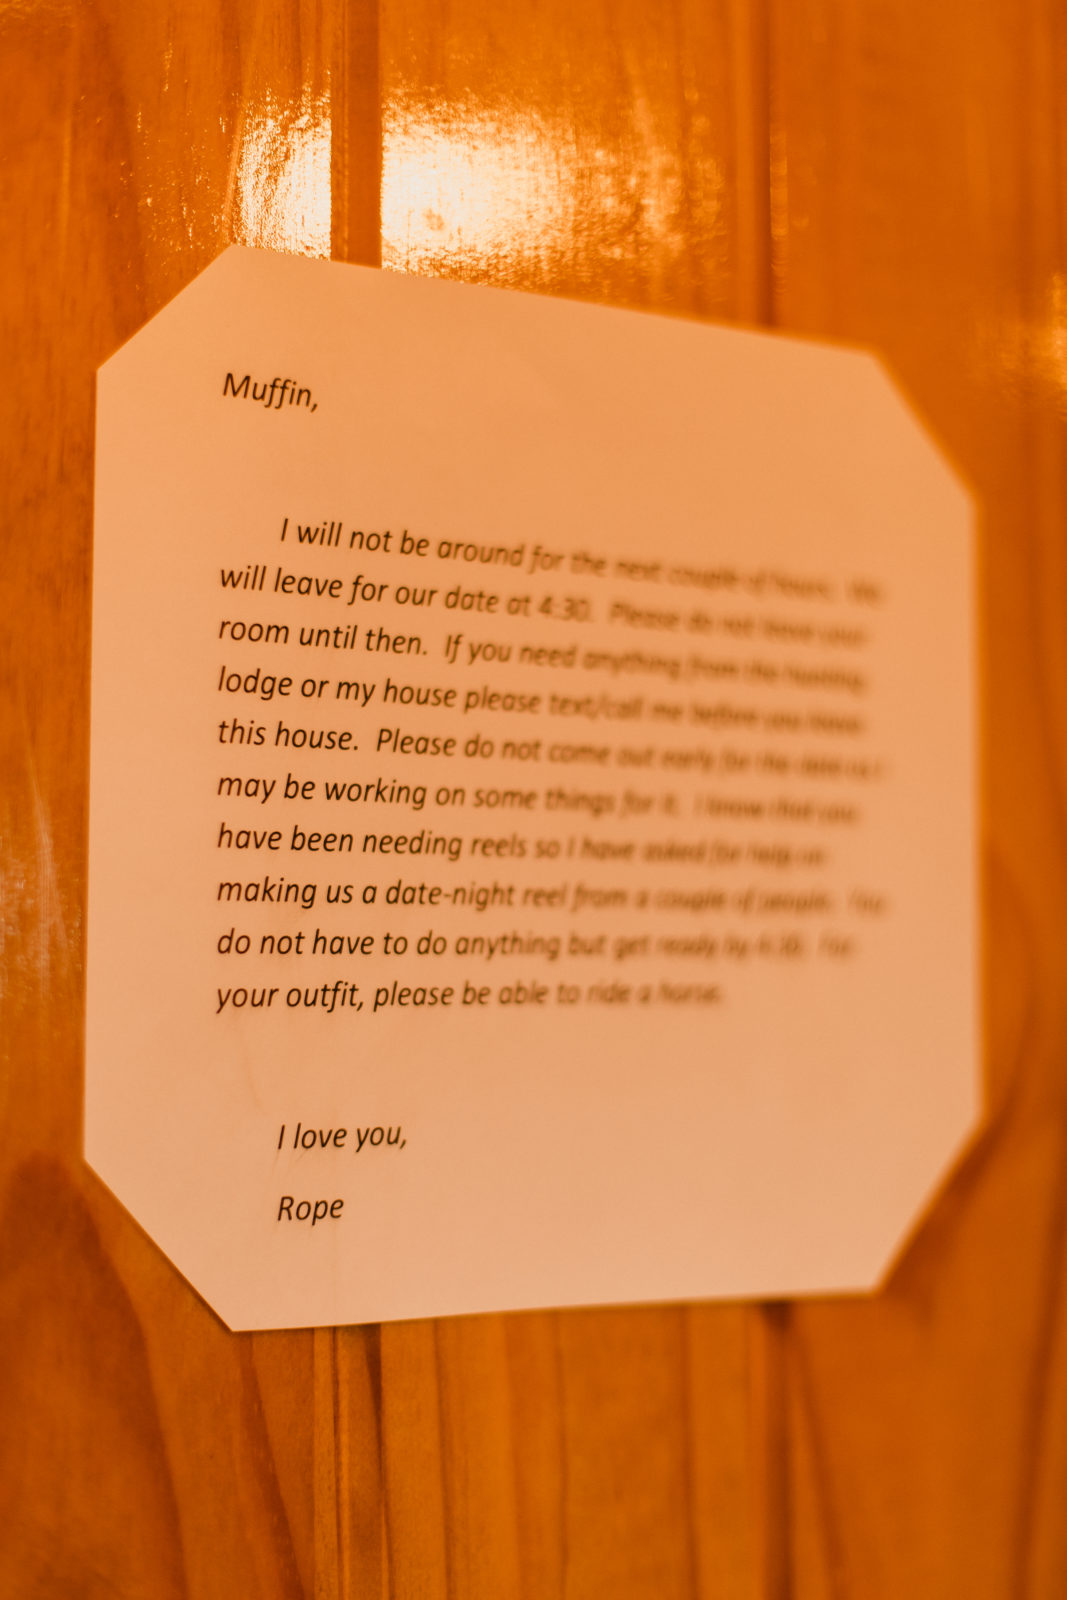 Muffin,
I will not be around for the next couple of hours. We
will leave for our date at 4:30. Please do not leave your
room until then. If you need anything from the hunting
lodge or my house please text/call me before you leave
this house. Please do not come out early for the date as I
may be working on some things for it. I know that you
have been needing reels so I have asked for help on
making us a date-night reel from a couple of people. You
do not have to do anything but get ready by 4:30. For
your outfit, please be able to ride a horse.
I love you,
Rope